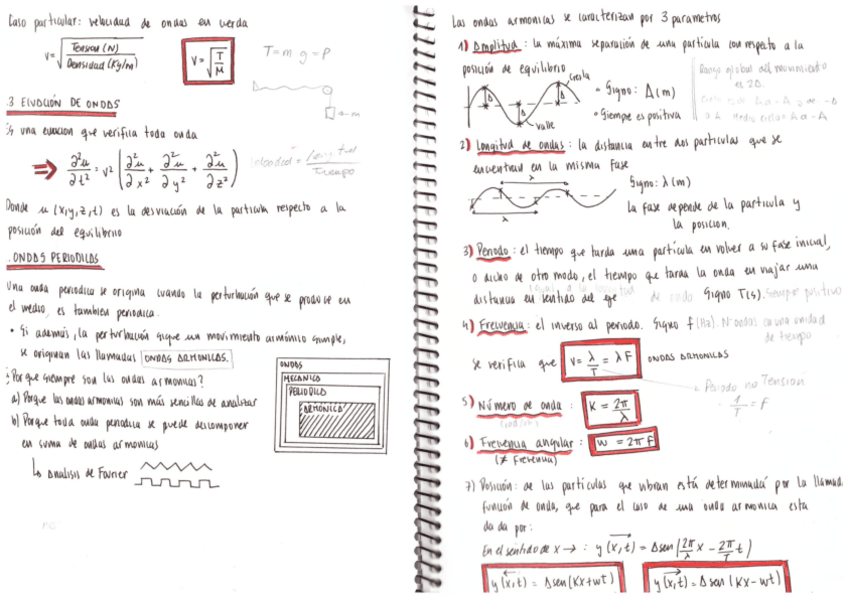 Caso particular: velocidad de ondas en cuerda
V = √(Tension (N) / Densidad (Kg/m))
V = √(T/M)
T = m g = P
m
.3 ECUACIÓN DE ONDAS
una ecuacion que verifica toda onda
⇒ ∂²u/∂t² = v² (∂²u/∂x² + ∂²u/∂y² + ∂²u/∂z²)
Velocidad = Longitud / Tiempo
Donde u (x,y,z,t) es la desviación de la particula respecto a la
posición del equilibrio
. ONDAS PERIODICAS
Una onda periodica se origina cuando la perturbación que se produce en
el medio, es tambien periodica.
• Si además, la perturbación sigue un movimiento armónico simple,
se originan las llamadas ONDAS ARMONICAS.
¿Por que siempre son las ondas armonicas?
a) Porque las ondas armonicas son más sencillas de analizar
b) Porque toda onda periodica se puede descomponer
en suma de ondas armonicas
↳ Analisis de Fourier
ONDAS
MECANICA
PERIODICA
ARMONICA
Las ondas armonicas se caracterizan por 3 parametros
1) Amplitud: la máxima separación de una particula con respecto a la
posición de equilibrio
Cresta
A
A
A
Valle
• Signo: A (m)
• Siempre es positiva
Rango global del movimiento
es 2A.
2) Longitud de ondas: la distancia entre dos particulas que se
encuentran en la misma fase
λ
λ
Signo: λ (m)
la fase depende de la particula y
la posicion.
3) Periodo: el tiempo que tarda una particula en volver a su fase inicial,
o dicho de otro modo, el tiempo que tarda la onda en viajar una
igual a la longitud
distancia en sentido del eje de onda Signo T(s). Siempre positivo
4) Frecuencia: el inverso al periodo. Signo f (Hz). Nº ondas en una unidad
de tiempo
se verifica que V = λ/T = λ F ONDAS ARMONICAS
Periodo no Tensión
1/T = F
5) Número de onda: K = 2π/λ
6) Frecuencia angular: W = 2π f
(≠ frecuencia)
7) Posición: de las particulas que vibran está determinada por la llamada
función de onda, que para el caso de una onda armonica esta
dada por:
En el sentido de x → : y (x,t) = A sen (2π/λ x - 2π/T t)
y (x,t) = A sen (Kx + wt)
y (x,t) = A sen (Kx - wt)